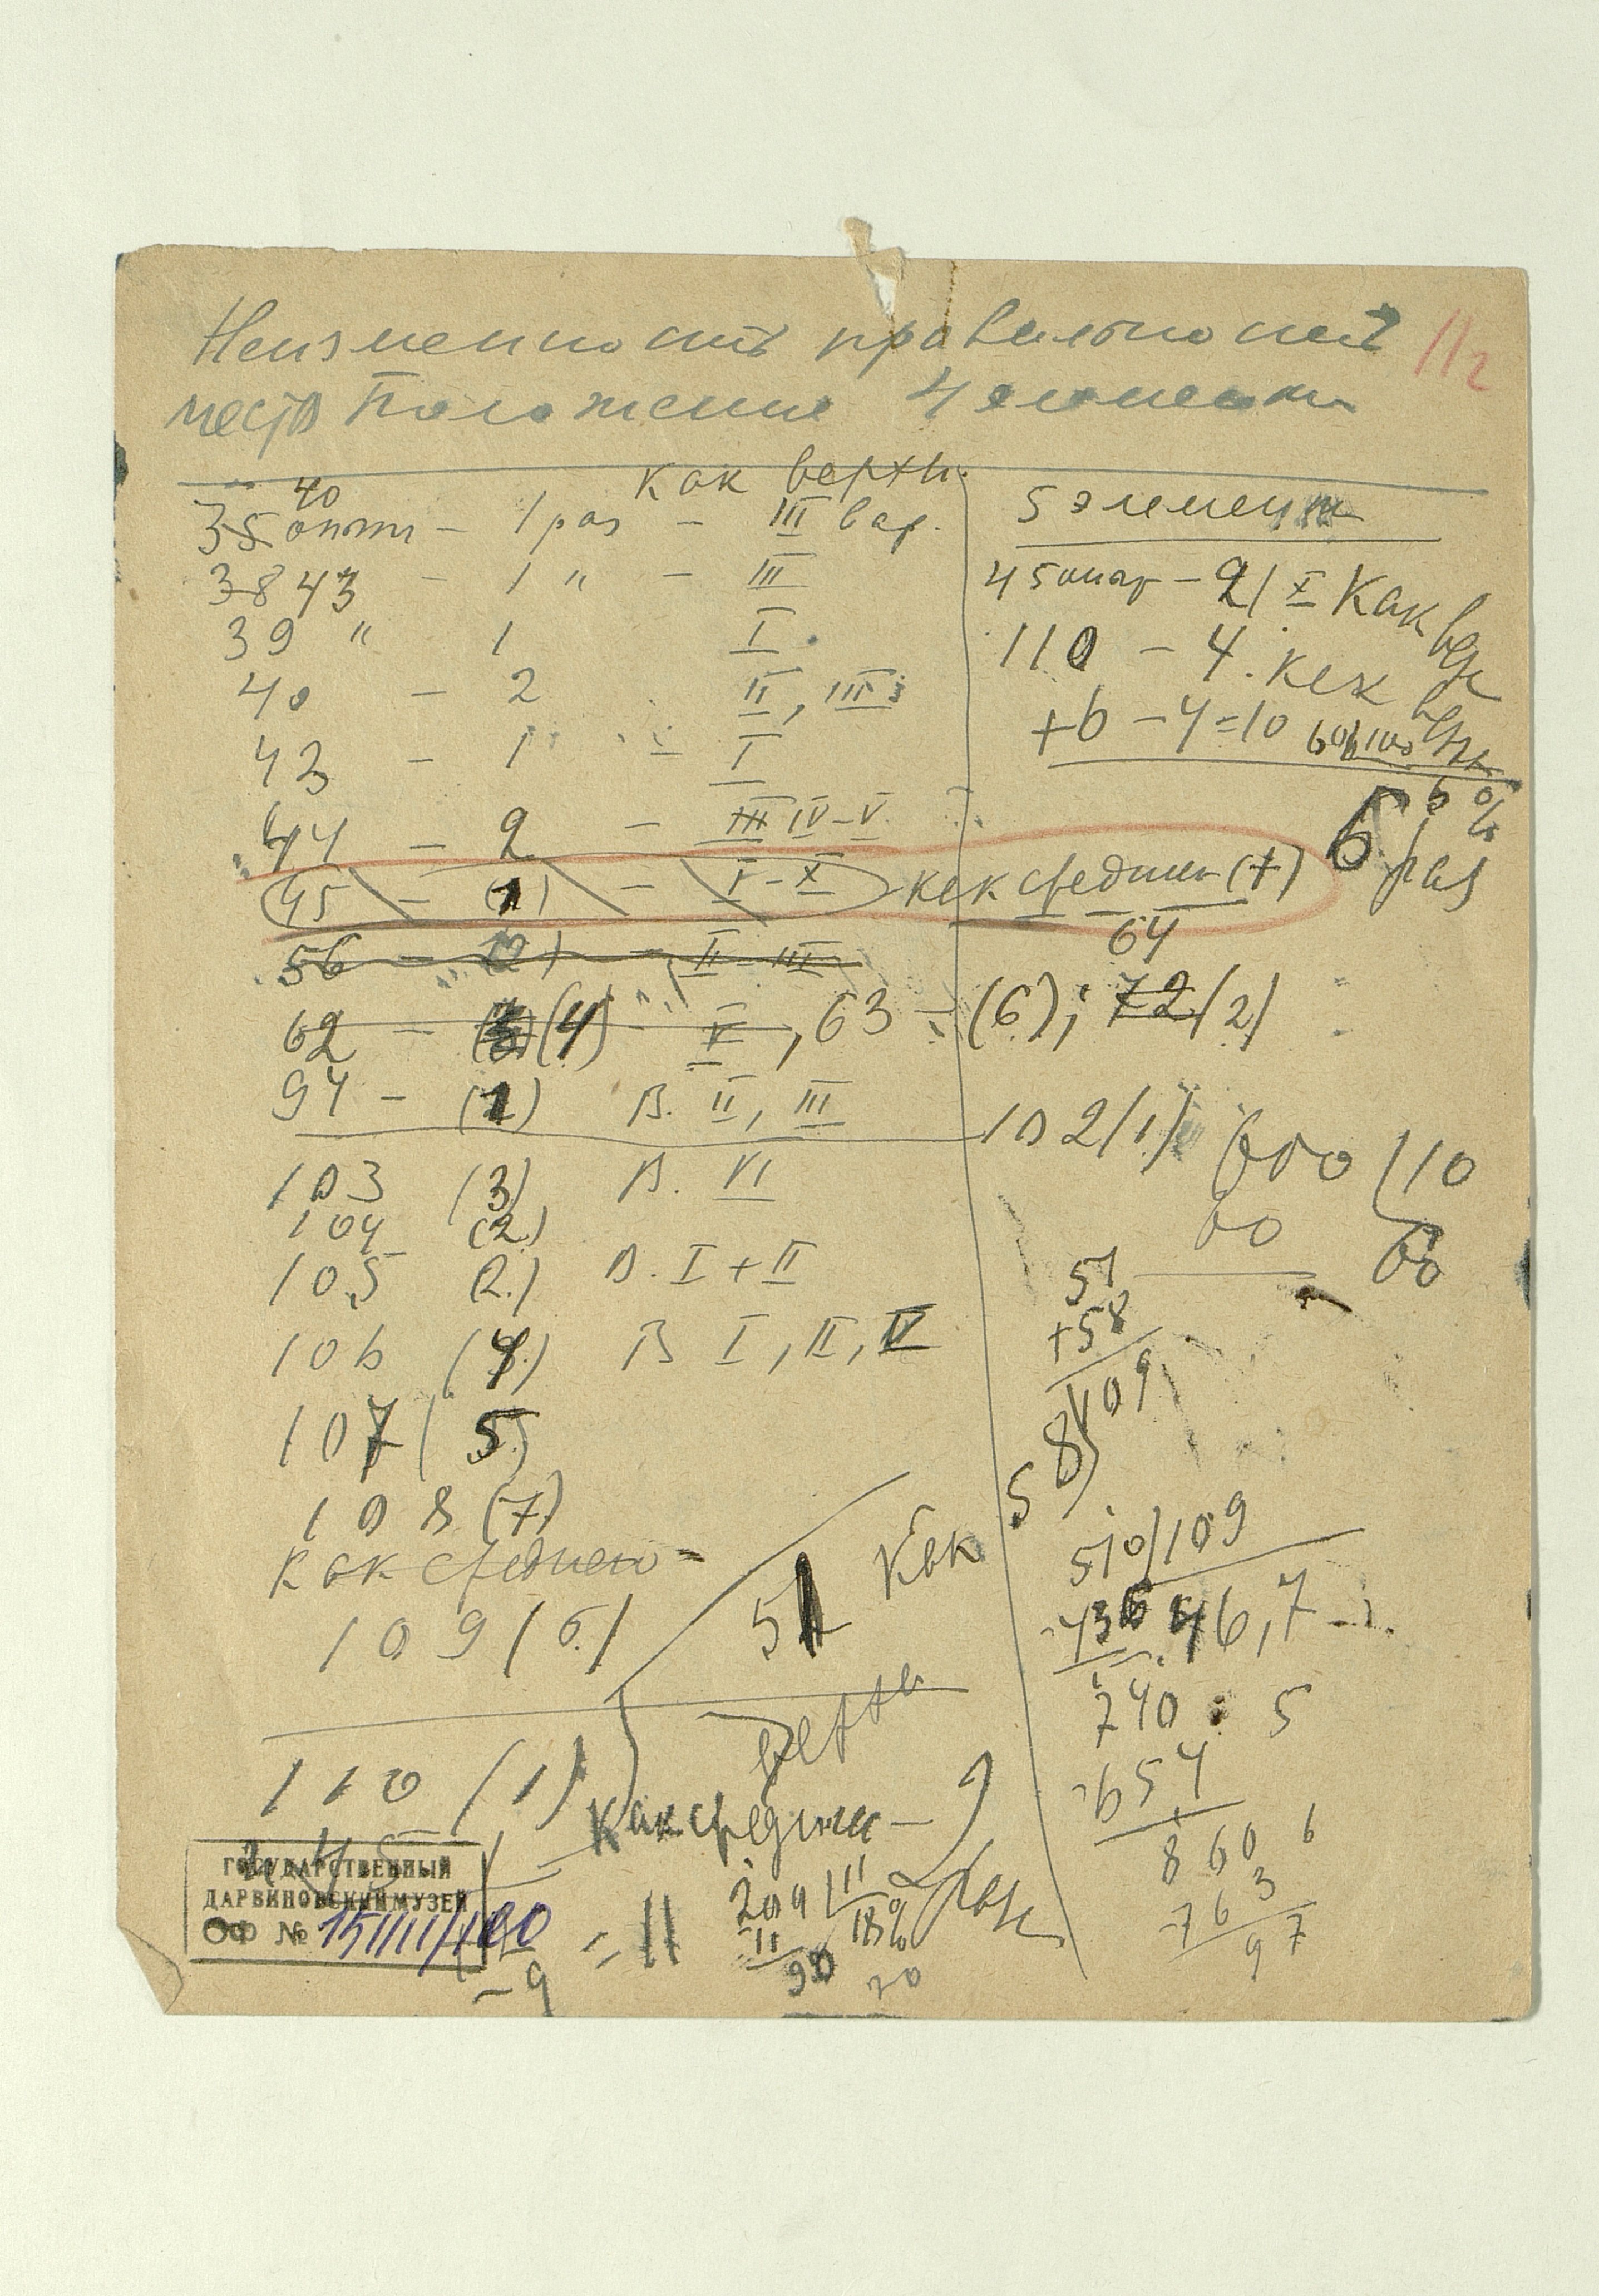 Неизменность правильност 11г
мест Положение 4 элемента
как верхн.
40
35 опыт - 1 раз - III вар.
3843 - 1 " - III
39 " 1 I
40 - 2 II, III
43 - 1 - I
44 - 2 - III IV-V
45 - (1) - I-X как средний (+)
56 - (2) - II-III
62 - (4) - V, 63 - (6); 72 (2)
64
94 - (1) В. II, III
103 (3) В. VI
104 (2)
105 (2) В. I + II
106 (4) В I, II, IV
107 (5)
108 (7)
как среднего =
109 (6)
51 Как
верхн
110 (1)
Как средн - 9
раз
= 11
- 9
209 11
11 18%
90 20
5 элемент
45 опыт - 2 | X Как
110 - 4. как
+6 - 4 = 10
6 %
6 раз
102 (1)
600 10
60 60
51
+58
109
58
510 109
436 46,7
740 5
654
860 6
763
97
ГОСУДАРСТВЕННЫЙ
ДАРВИНОВСКИЙ МУЗЕЙ
ОФ №